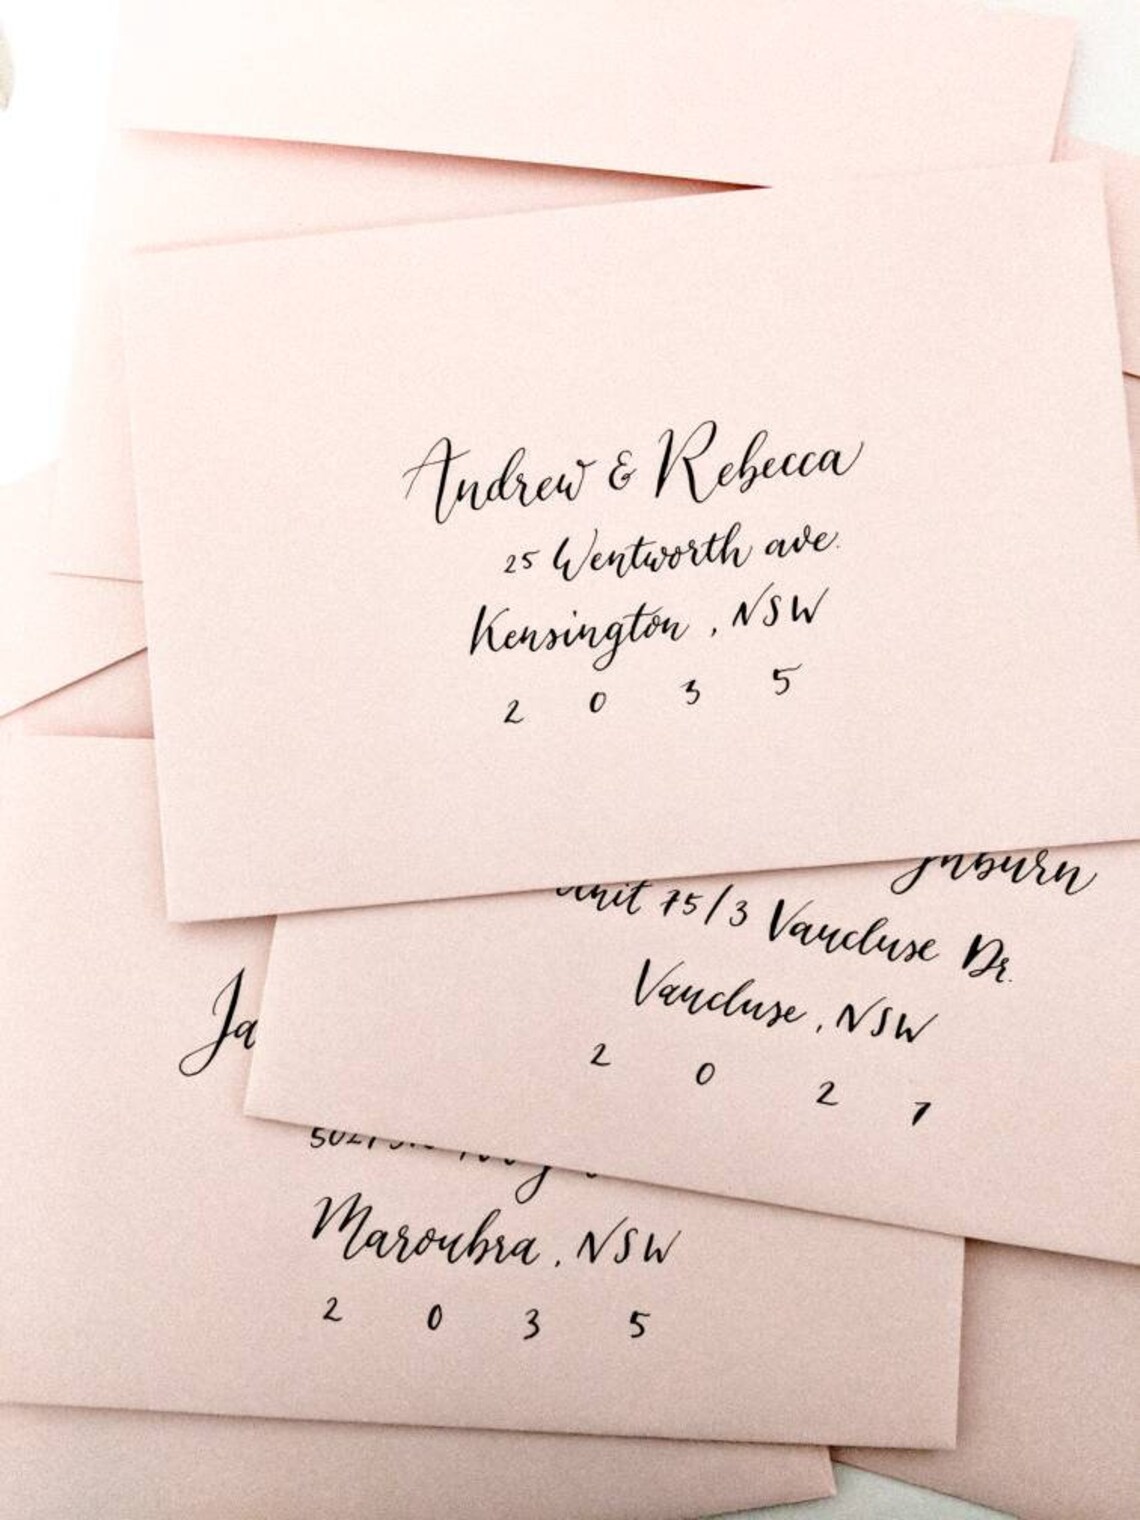 Andrew & Rebecca
25 Wentworth ave.
Kensington, NSW
2 0 3 5
Unit 75/3 Vaucluse Dr.
Vaucluse, NSW
2 0 2 7
Ja
Maroubra, NSW
2 0 3 5